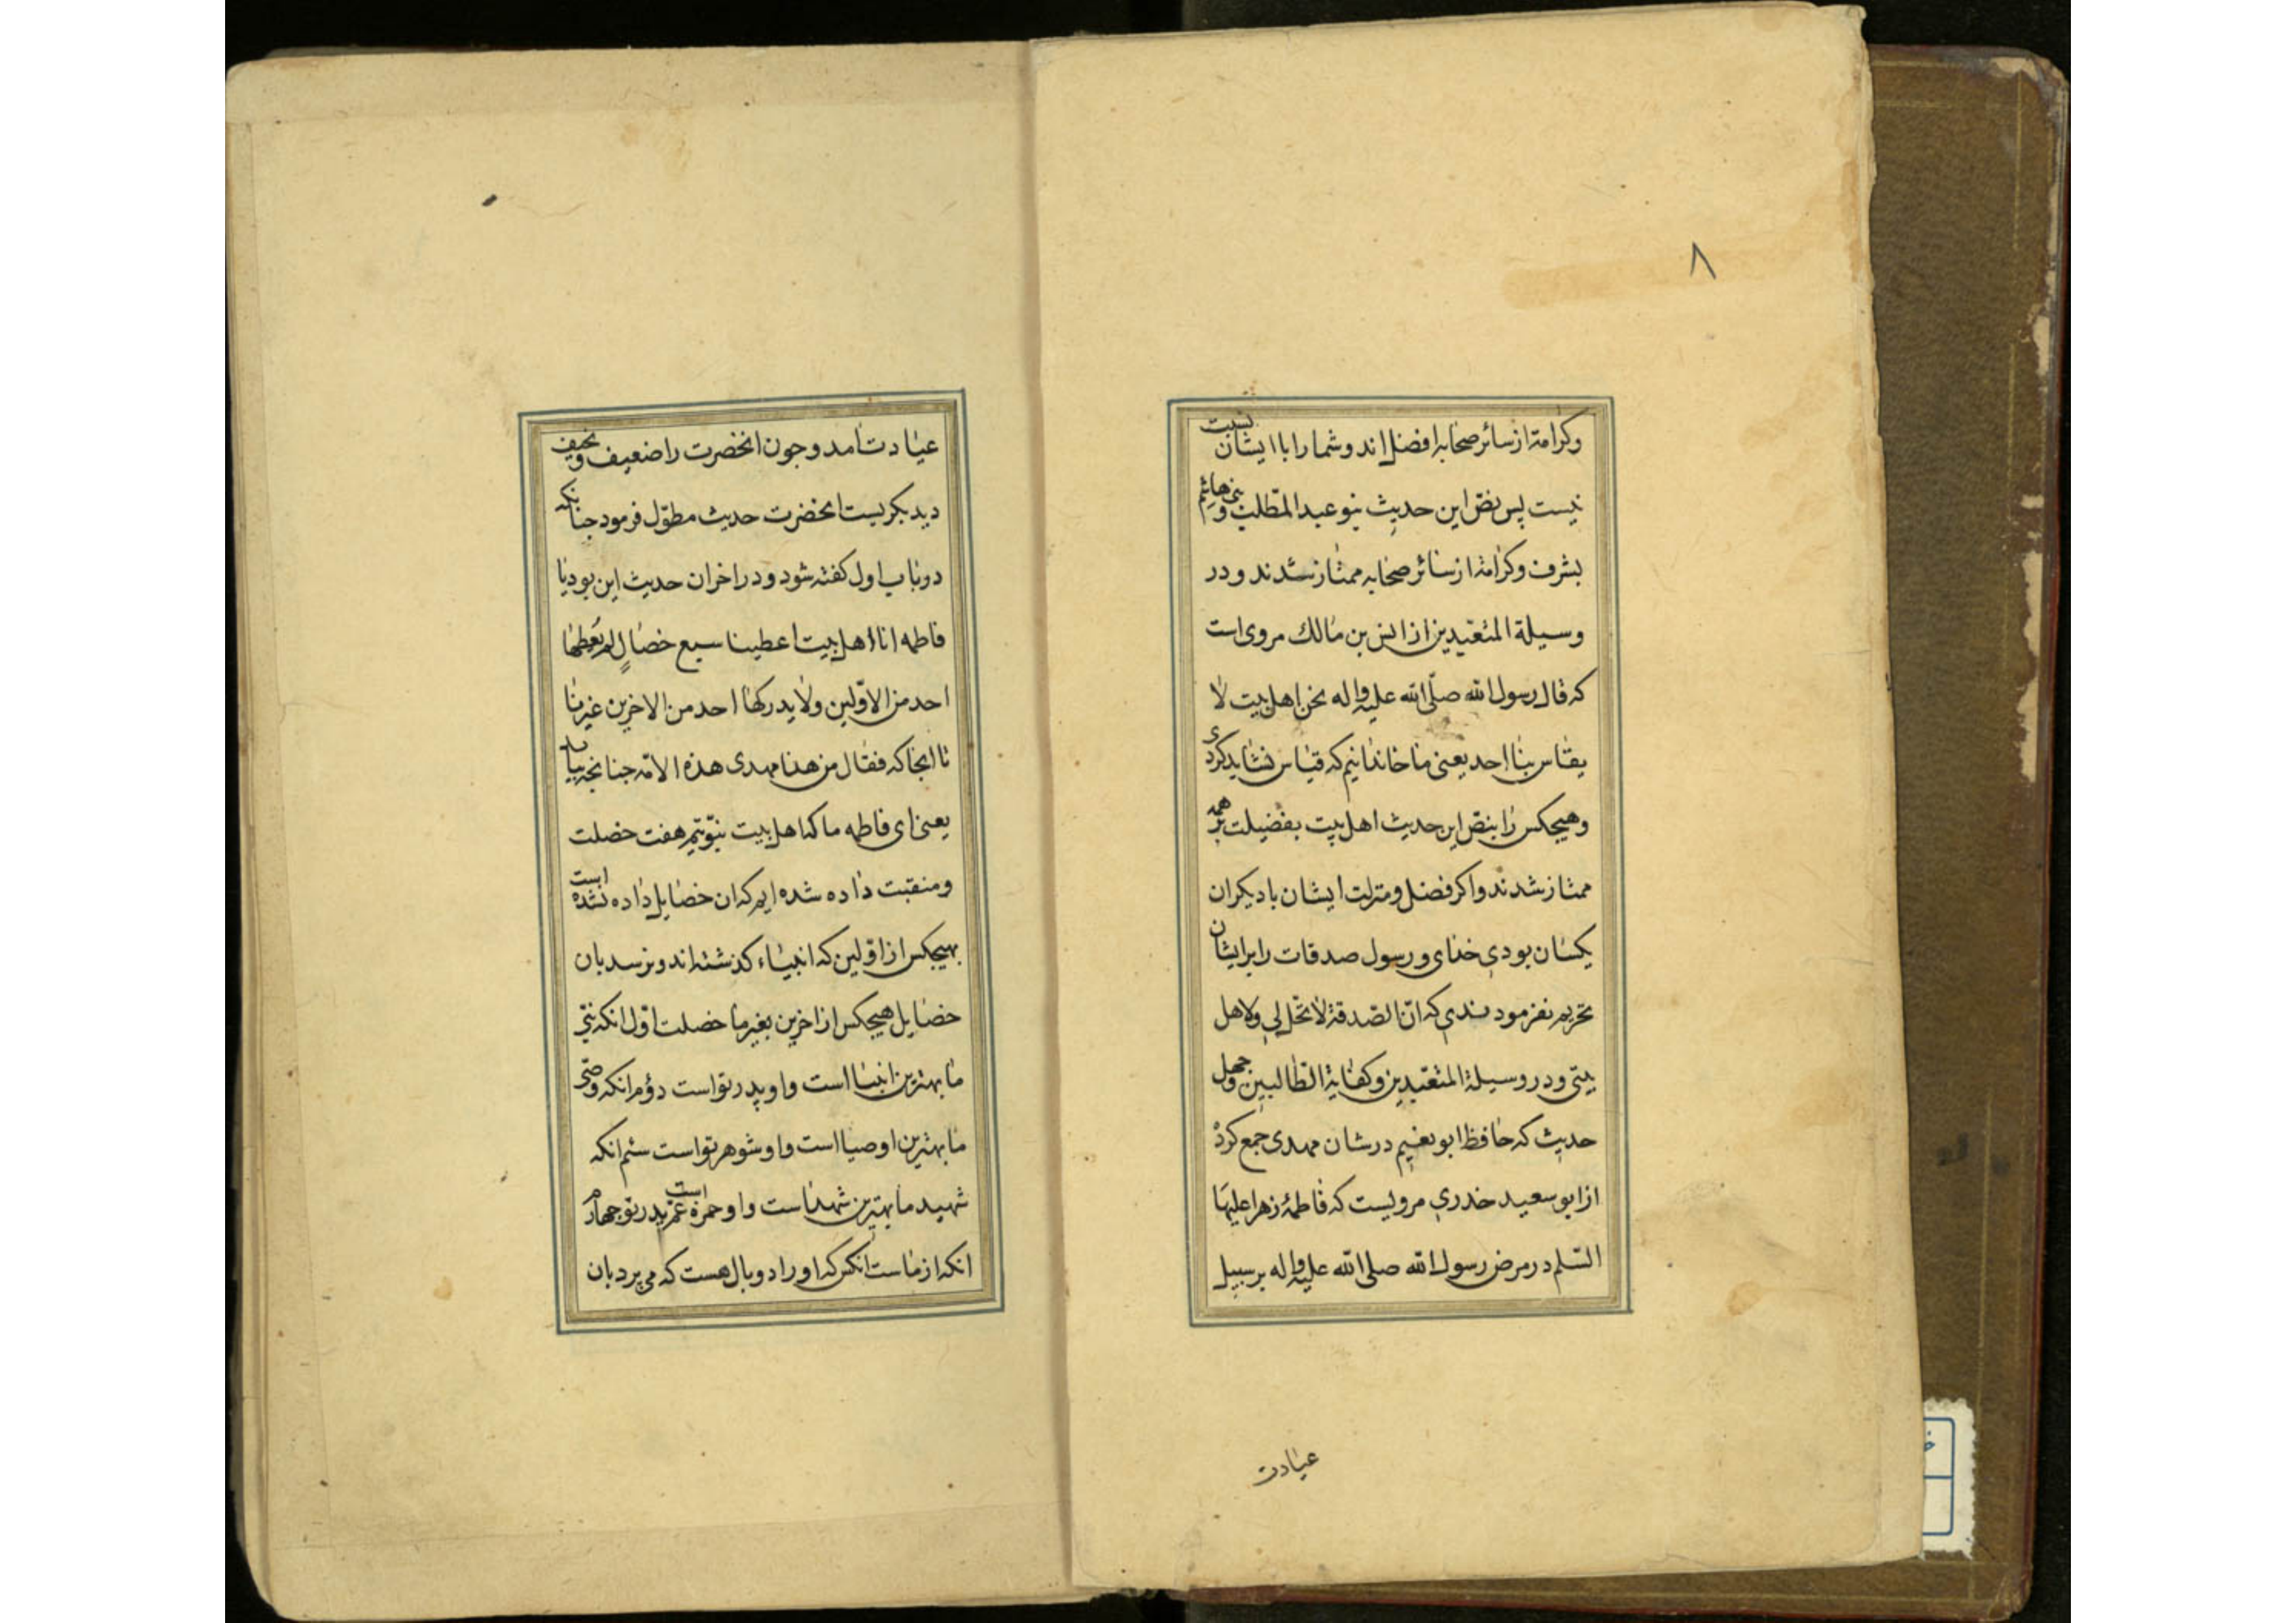 ۸
وکرامة از سائر صحابه افضل اند و شما را با ایشان نسبت
نیست پس بنص این حدیث بنو عبدالمطلب و بنی هاشم
بشرف وکرامة از سائر صحابه ممتاز شدند و در
وسیلة المتعبدین از انس بن مالك مروی است
که قال رسول الله صلّی الله علیه واله نحن اهل بیت لا
یقاس بنا احد یعنی ما خاندانیم که قیاس نشاید کردی
وهیچکس را بنص این حدیث اهل بیت بفضیلت بر همه
ممتاز شدند واکر فضل ومنزلت ایشان با دیکران
یکسان بودی خدای و رسول صدقات را بر ایشان
تحریم نفرمودندی که انّ الصّدقة لا تحّل لی ولاهل
بیتی ودر وسیلة المتعبدین وکفایة الطّالبین وچهل
حدیث که حافظ ابو نعیم در شان مهدی جمع کرده
از ابو سعید خدری مرویست که فاطمهٔ زهرا علیها
السّلم در مرض رسول الله صلی الله علیه واله بر سبیل
عیادت
عیادت امد وچون انحضرت را ضعیف و نحیف
دید بکریست انحضرت حدیث مطوّل فرمود چنانکه
در باب اول کفته شود ودر اخر ان حدیث این بود یا
فاطمه انا اهل بیت اعطینا سبع خصالٍ لم یُعطها
احد من الاوّلین ولا یدرکها احد من الاخرین غیرنا
تا انجا که فقال من هنا مهدی هذه الامّه چنانچه بیاید
یعنی ای فاطمه ما که اهل بیت نبوّتیم هفت خصلت
ومنقبت داده شده ایم که ان خصایل داده نشده است
بهیچکس از اوّلین که انبیاء کذشته اند ونرسد بان
خصایل هیچکس از اخرین بغیر ما خصلت اوّل انکه نبّی
ما بهترین انبیا است واو پدر تو است دوّم انکه وصّی
ما بهترین اوصیا است واو شوهر تو است سیّم انکه
شهید ما بهترین شهدا است واو حمزه عمّ پدر تو است چهارم
انکه از ماست انکس که او را دو بال هست که می پرد بان